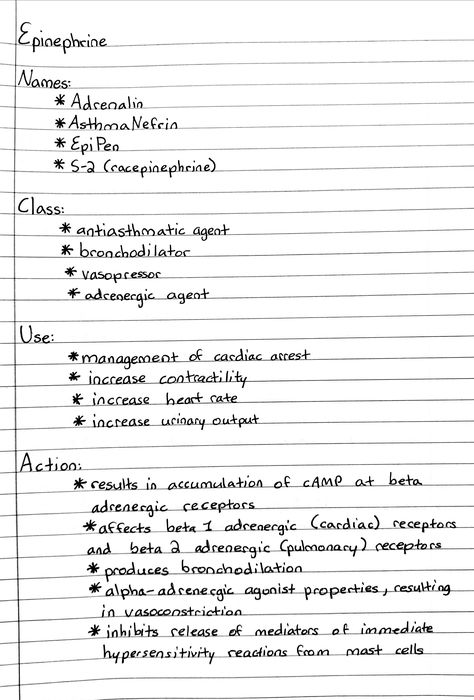 Epinephrine
Names:
* Adrenalin
* AsthmaNefrin
* EpiPen
* S-2 (racepinephrine)
Class:
* antiasthmatic agent
* bronchodilator
* vasopressor
* adrenergic agent
Use:
* management of cardiac arrest
* increase contractility
* increase heart rate
* increase urinary output
Action:
* results in accumulation of cAMP at beta
adrenergic receptors
* affects beta 1 adrenergic (cardiac) receptors
and beta 2 adrenergic (pulmonary) receptors
* produces bronchodilation
* alpha-adrenergic agonist properties, resulting
in vasoconstriction
* inhibits release of mediators of immediate
hypersensitivity reactions from mast cells